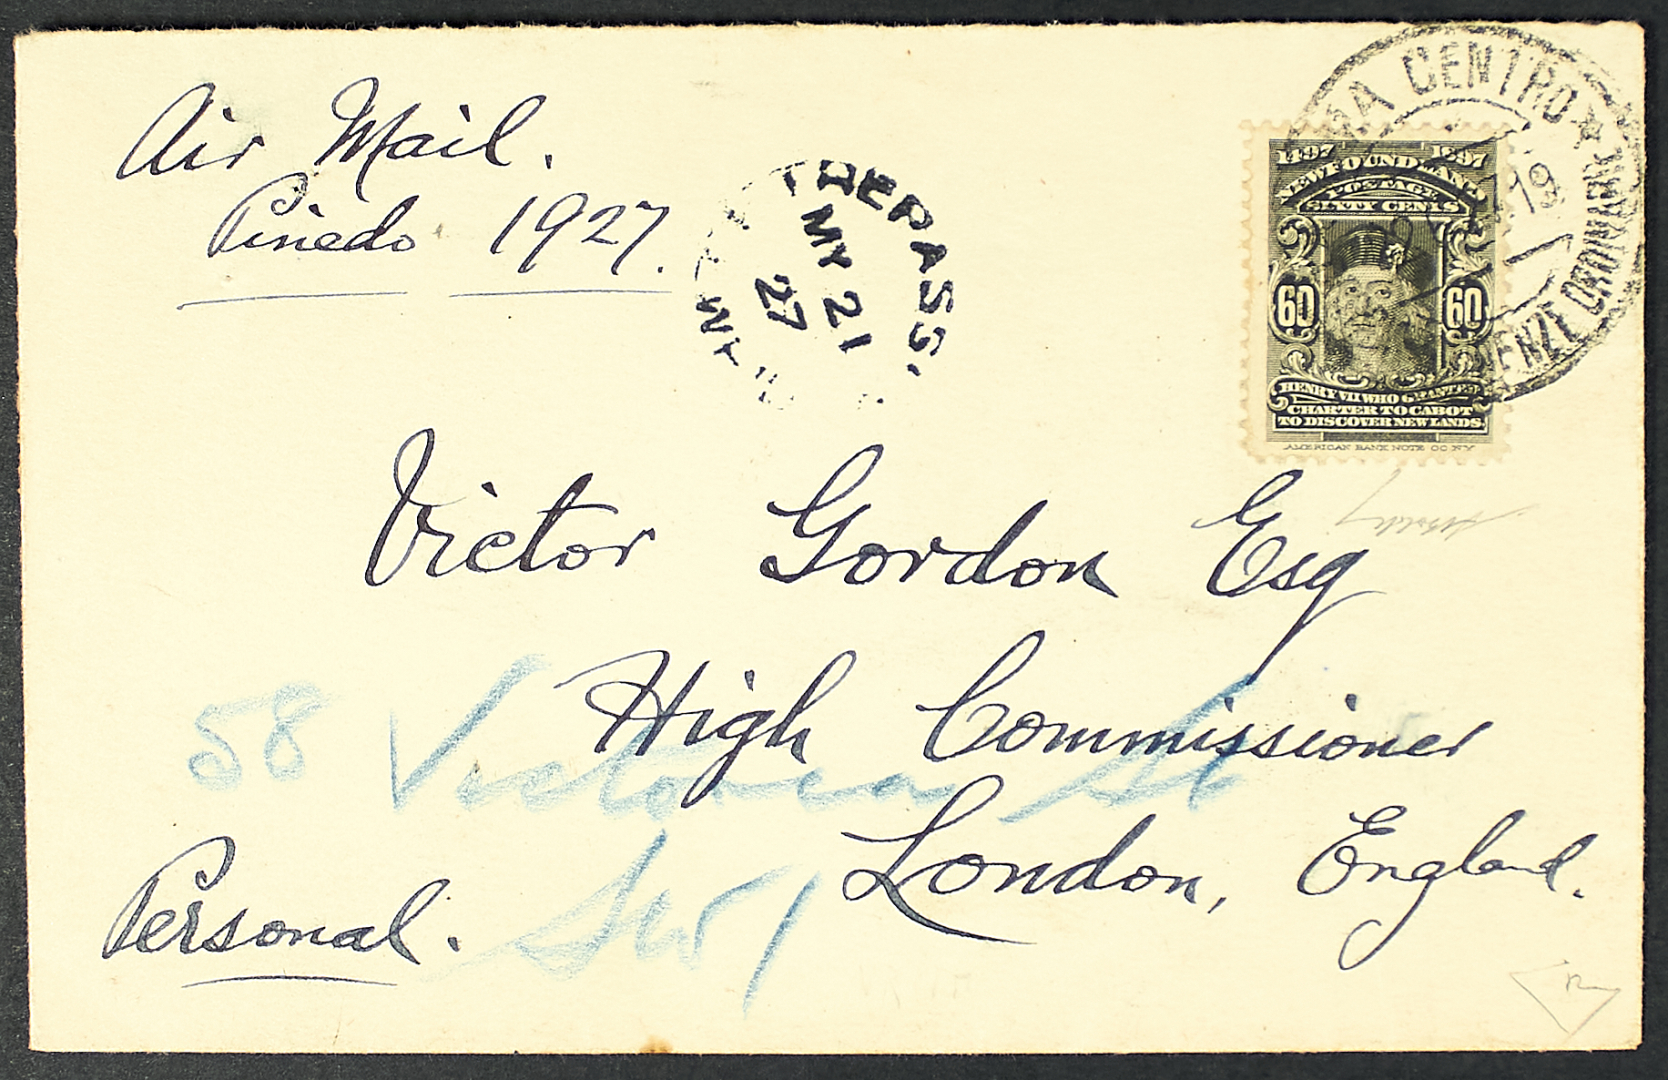 Air Mail.
Pinedo 1927.
TREPASS.
MY 21
27
CENTRO
19
1497 1897
NEWFOUNDLAND
POSTAGE
SIXTY CENTS
60 60
HENRY VII WHO GRANTED
CHARTER TO CABOT
TO DISCOVER NEW LANDS.
AMERICAN BANK NOTE CO. NY
Victor Gordon Esq
High Commissioner
58 Victoria St
London, England.
SW1
Personal.